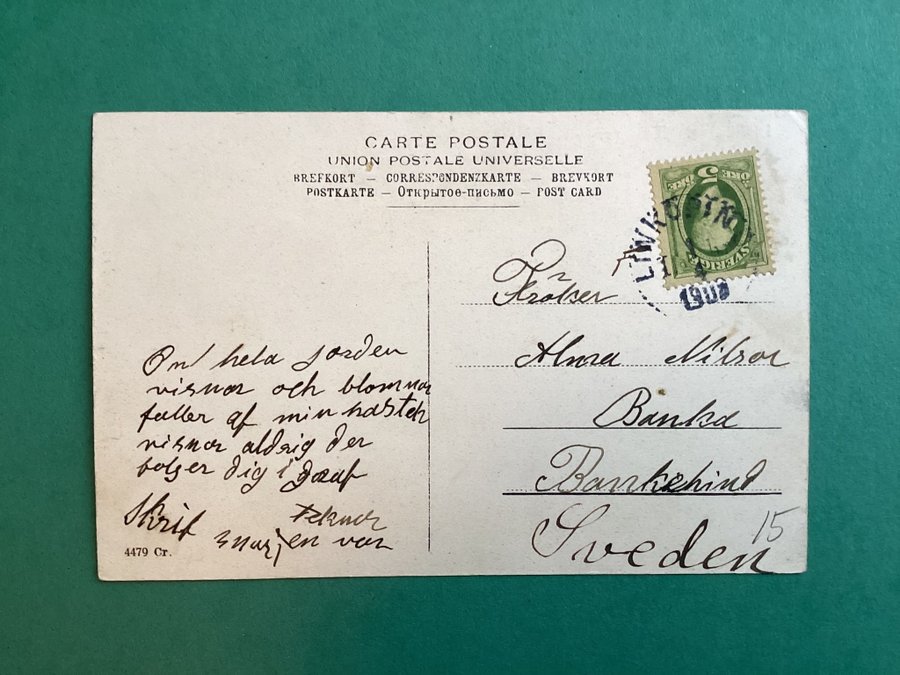 CARTE POSTALE
UNION POSTALE UNIVERSELLE
BREFKORT — CORRESPONDENZKARTE — BREVKORT
POSTKARTE — Открытое-письмо — POST CARD
5 ÖRE
SVERIGE
1903
Fröken
Alma Nilson
Banka
Bankekind
Sveden
15
Om hela jorden
visnar och blommor
faller af min
visnar aldrig den
följer dig i graf
Skrif
snarjen var
4479 Cr.